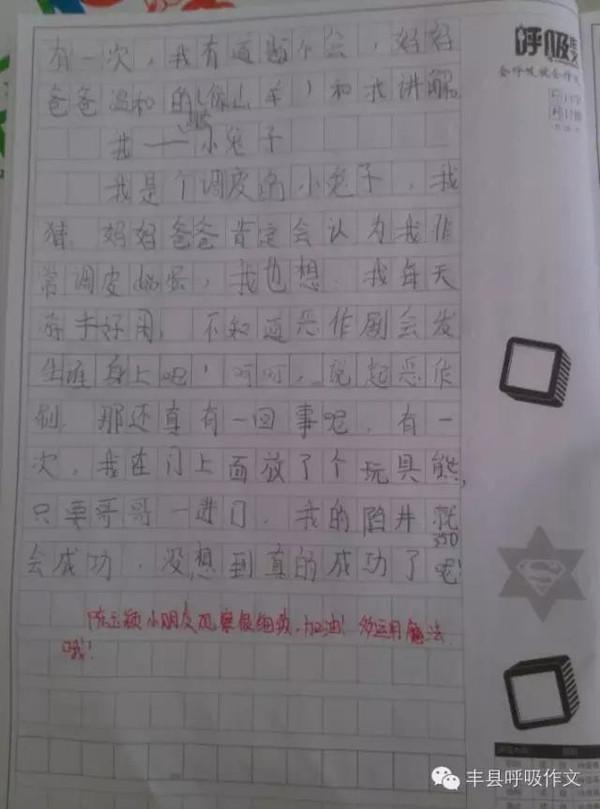 有一次，我有道题不会，好好
爸爸温和的（像山羊）和我讲解
我——小兔子
我是个调皮的小兔子，我
猜，妈妈爸爸肯定会认为我非
常调皮，我也想，我每天
好用，不知道恶作剧会发
生谁身上呢！呵呵，说起恶作
剧，那还真有一回事呢，有一
次，我在门上面放了个玩具熊，
只要哥哥一进门，我的陷井就
350
会成功，没想到真的成功了呢！
陈玉颖小朋友观察很细致，加油！多运用魔法
哦！
呼吸作文
会呼吸就会作文
丰县呼吸作文